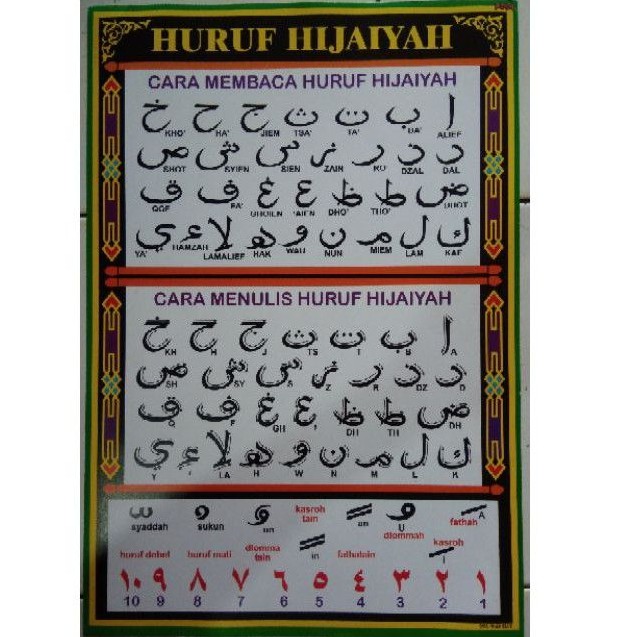 HURUF HIJAIYAH
CARA MEMBACA HURUF HIJAIYAH
ا ب ت ث ج ح خ
ALIEF BA' TA' TSA' JIEM HA' KHO'
د ذ ر ز س ش ص
DAL DZAL RO' ZAIN SIEN SYIEN SHOT
ض ط ظ ع غ ف ق
DHOT THO' DHO' 'AIEN GHOIEN FA' QOF
ك ل م ن و ه لا ء ي
KAF LAM MIEM NUN WAU HAK LAMALIEF HAMZAH YA'
CARA MENULIS HURUF HIJAIYAH
ا ب ت ث ج ح خ
A B T TS J H KH
د ذ ر ز س ش ص
D DZ R Z S SY SH
ض ط ظ ع غ ف ق
DH TH DH ' GH F
ك ل م ن و ه لا ء ي
K L M N W H LA Y
syaddah sukun un kasroh tain an U dlommah fathah A
huruf dobel huruf mati dlomma tain in fathatain kasroh i
١ ٢ ٣ ٤ ٥ ٦ ٧ ٨ ٩ ١٠
10 9 8 7 6 5 4 3 2 1